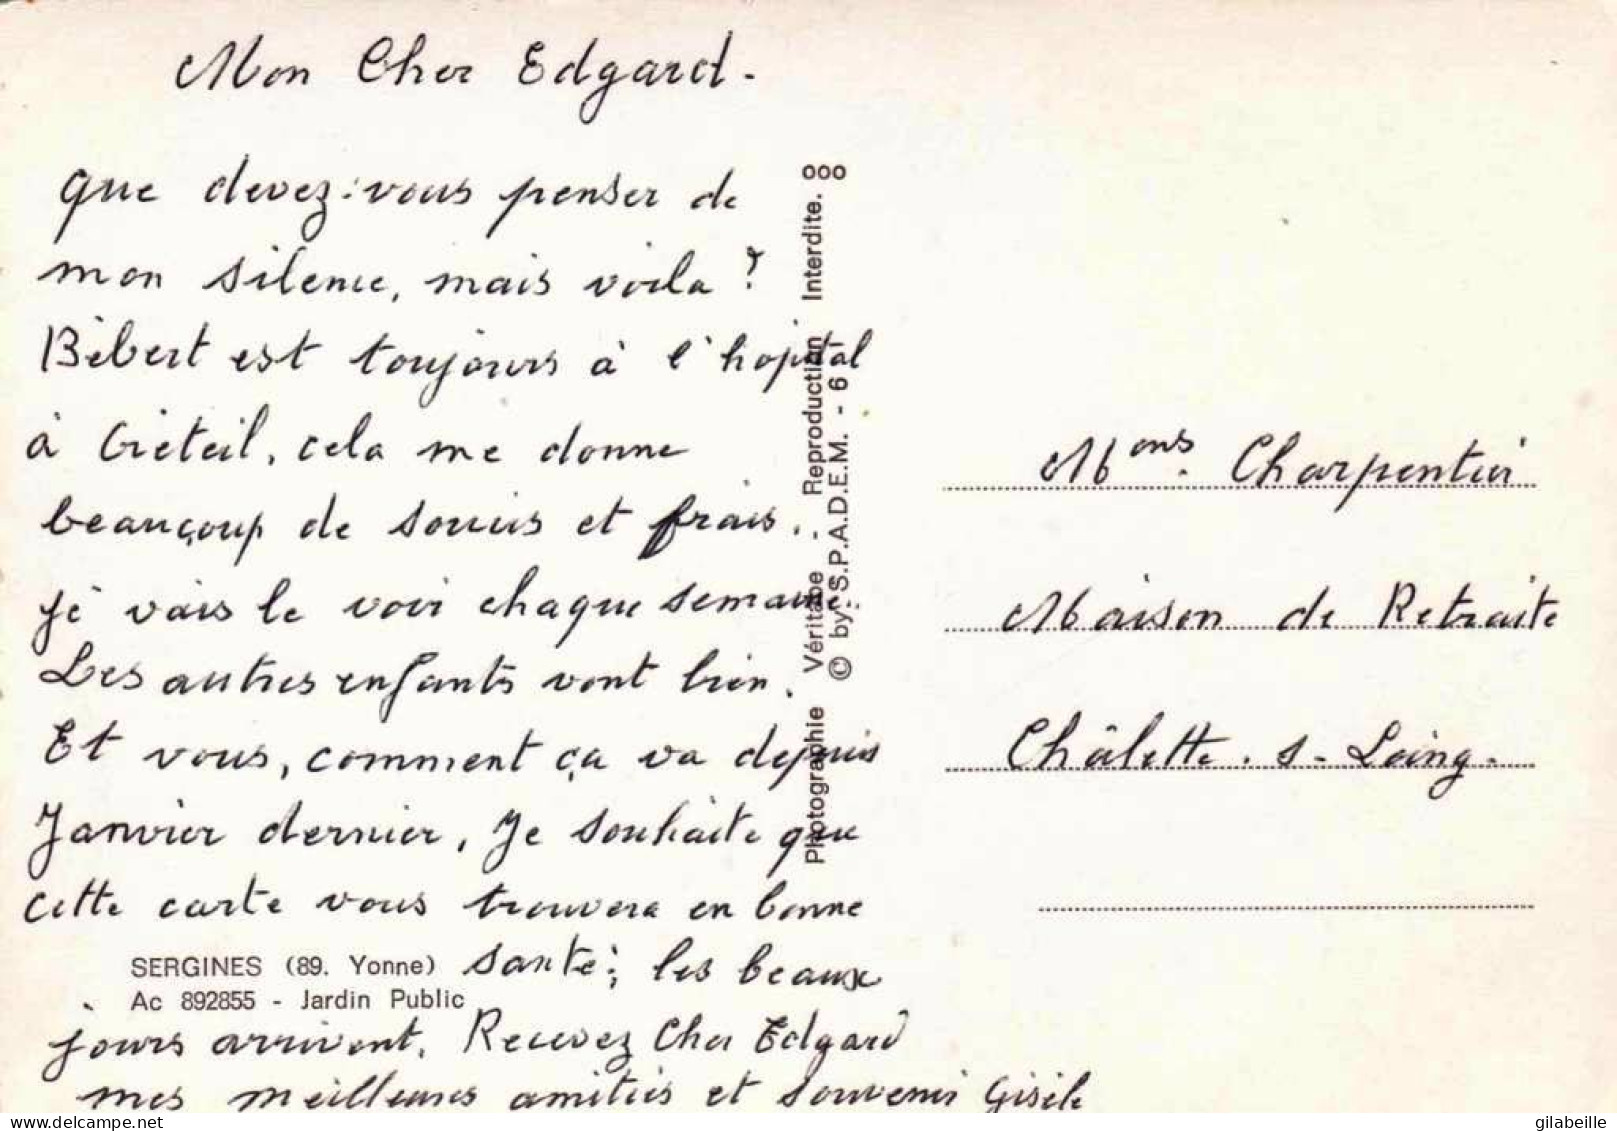 Mon Cher Edgard.
que devez-vous penser de
mon silence, mais voila ?
Bébert est toujours à l'hopital
à Créteil, cela me donne
beaucoup de soucis et frais.
je vais le voir chaque semaine.
Les autres enfants vont bien.
Et vous, comment ça va depuis
Janvier dernier, Je souhaite que
cette carte vous trouvera en bonne
santé, les beaux
jours arrivent. Recevez Cher Edgard
mes meilleures amitiés et souvenir Gisèle
SERGINES (89. Yonne)
Ac 892855 - Jardin Public
Photographie Véritable - Reproduction Interdite.
© by S.P.A.D.E.M. - 6
Mons. Charpentier
Maison de Retraite
Châlette. s- Loing.
gilabeille